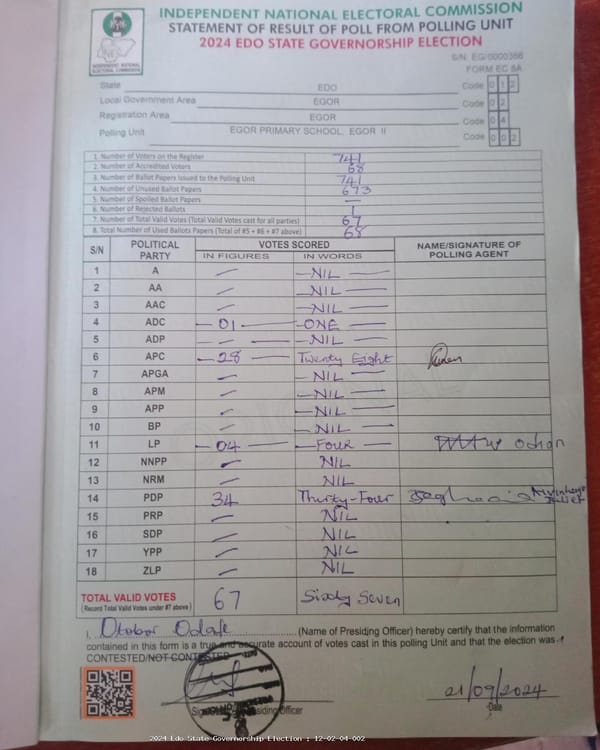 INDEPENDENT NATIONAL ELECTORAL COMMISSION
STATEMENT OF RESULT OF POLL FROM POLLING UNIT
2024 EDO STATE GOVERNORSHIP ELECTION
INDEPENDENT NATIONAL ELECTORAL COMMISSION
S/N: EG/0000366
FORM EC 8A
State EDO Code 0 1 2
Local Government Area EGOR Code 0 2
Registration Area EGOR Code 0 4
Polling Unit EGOR PRIMARY SCHOOL, EGOR II Code 0 0 2
1. Number of Voters on the Register 741
2. Number of Accredited Voters 68
3. Number of Ballot Papers Issued to the Polling Unit 741
4. Number of Unused Ballot Papers 673
5. Number of Spoiled Ballot Papers —
6. Number of Rejected Ballots 1
7. Number of Total Valid Votes (Total Valid Votes cast for all parties) 67
8. Total Number of Used Ballots Papers (Total of #5 + #6 + #7 above) 68
S/N POLITICAL PARTY VOTES SCORED NAME/SIGNATURE OF POLLING AGENT
IN FIGURES IN WORDS
1 A — NIL —
2 AA — NIL —
3 AAC — NIL —
4 ADC — 01 — ONE —
5 ADP — NIL —
6 APC — 28 — Twenty Eight
7 APGA — NIL —
8 APM — NIL —
9 APP — NIL —
10 BP — NIL —
11 LP — 04 — FOUR — Odion
12 NNPP — NIL
13 NRM — NIL
14 PDP 34 Thirty-Four
15 PRP — NIL
16 SDP — NIL
17 YPP — NIL
18 ZLP — NIL
TOTAL VALID VOTES 67 Sixty Seven
(Record Total Valid Votes under #7 above)
I, Otobor Odafe (Name of Presiding Officer) hereby certify that the information
contained in this form is a true and accurate account of votes cast in this polling Unit and that the election was
CONTESTED/NOT CONTESTED
21/09/2024
Presiding Officer
Date
2024 Edo State Governorship Election : 12-02-04-002